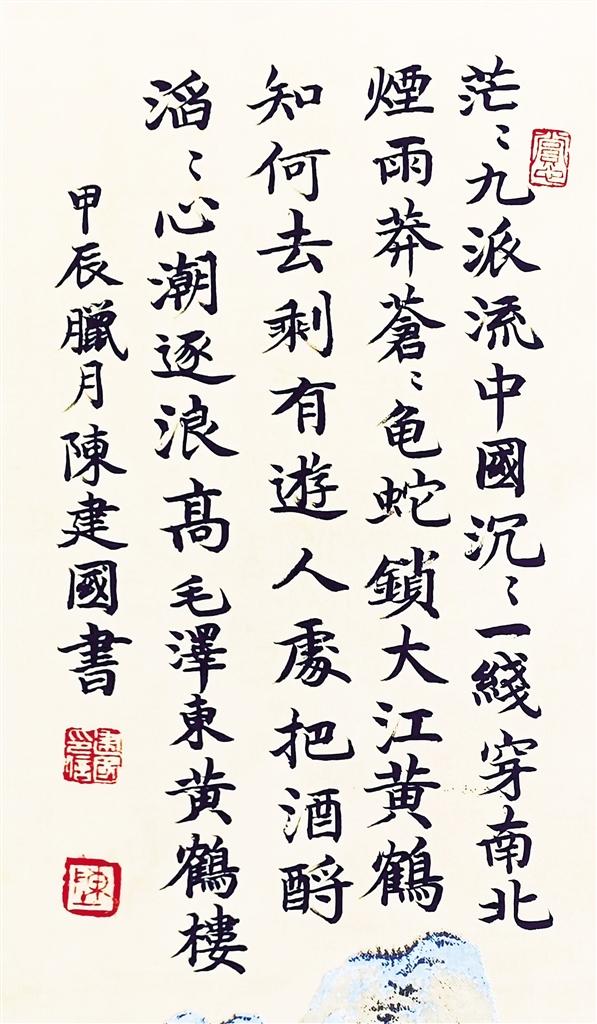 茫〻九派流中國沉〻一綫穿南北
煙雨莽蒼〻龟蛇鎖大江黄鶴
知何去剩有遊人處把酒酹
滔〻心潮逐浪高毛澤東黄鶴樓
甲辰臘月陳建國書
建國印信
陳